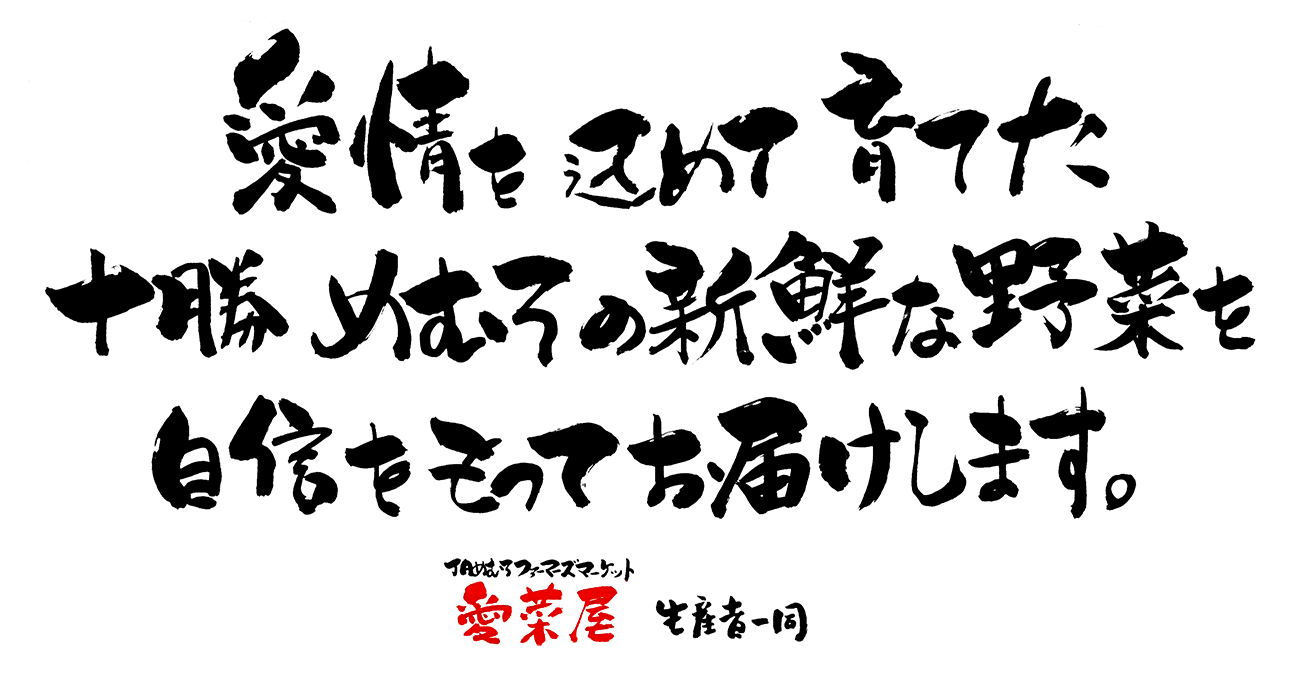 愛情を込めて育てた
十勝 めむろの新鮮な野菜を
自信をもってお届けします。
JAめむろファーマーズマーケット
愛菜屋 生産者一同